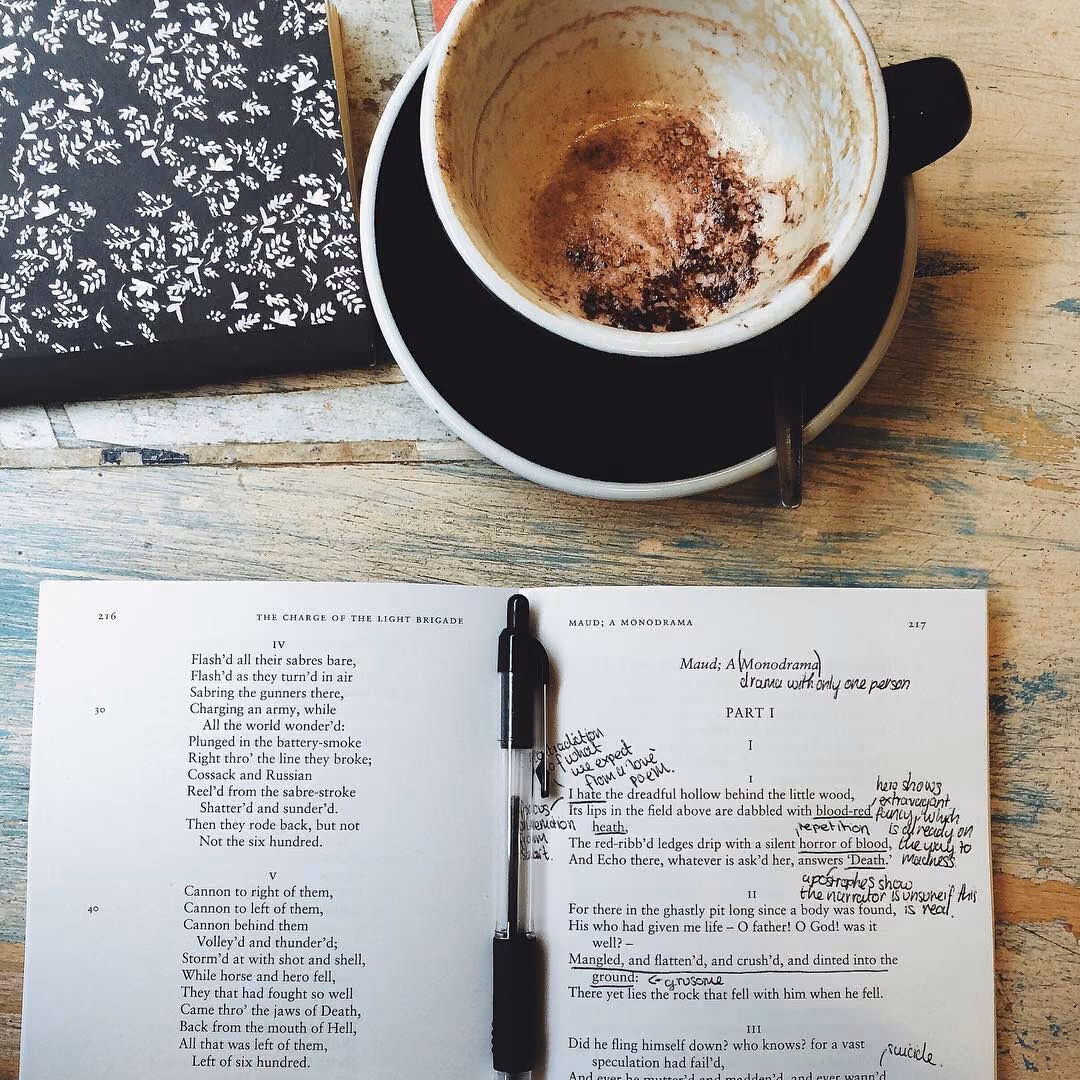 216
THE CHARGE OF THE LIGHT BRIGADE
IV
Flash'd all their sabres bare,
Flash'd as they turn'd in air
Sabring the gunners there,
30 Charging an army, while
All the world wonder'd:
Plunged in the battery-smoke
Right thro' the line they broke;
Cossack and Russian
Reel'd from the sabre-stroke
Shatter'd and sunder'd.
Then they rode back, but not
Not the six hundred.
V
Cannon to right of them,
40 Cannon to left of them,
Cannon behind them
Volley'd and thunder'd;
Storm'd at with shot and shell,
While horse and hero fell,
They that had fought so well
Came thro' the jaws of Death,
Back from the mouth of Hell,
All that was left of them,
Left of six hundred.
MAUD; A MONODRAMA
217
Maud; A (Monodrama)
drama with only one person
PART I
I
of what
we expect
from a 'love'
poem.
I
I hate the dreadful hollow behind the little wood,
Its lips in the field above are dabbled with blood-red
heath,
The red-ribb'd ledges drip with a silent horror of blood,
And Echo there, whatever is ask'd her, answers 'Death.'
hero shows
extravagant
fancy, which
is already on
the way to
madness
repetition
apostrophes show
the narrator is unsure if this
is real.
II
For there in the ghastly pit long since a body was found,
His who had given me life – O father! O God! was it
well? –
Mangled, and flatten'd, and crush'd, and dinted into the
ground: ← grusome
There yet lies the rock that fell with him when he fell.
III
Did he fling himself down? who knows? for a vast
speculation had fail'd,
suicide.
And ever he mutter'd and madden'd, and ever wann'd